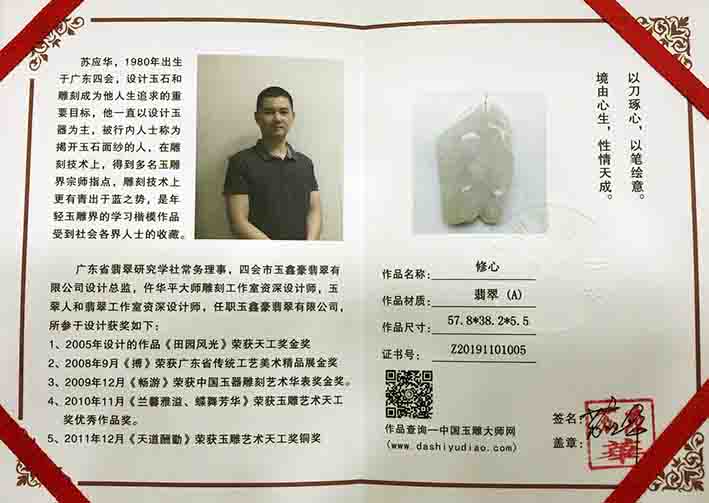 苏应华，1980年出生
于广东四会，设计玉石和
雕刻成为他人生追求的重
要目标，他一直以设计玉
器为主，被行内人士称为
揭开玉石面纱的人，在雕
刻技术上，得到多名玉雕
界宗师指点，雕刻技术上
更有青出于蓝之势，是年
轻玉雕界的学习楷模作品
受到社会各界人士的收藏。
广东省翡翠研究学社常务理事，四会市玉鑫豪翡翠有
限公司设计总监，仵华平大师雕刻工作室资深设计师，玉
翠人和翡翠工作室资深设计师，任职玉鑫豪翡翠有限公司，
所参于设计获奖如下：
1、2005年设计的作品《田园风光》荣获天工奖金奖
2、2008年9月《搏》荣获广东省传统工艺美术精品展金奖
3、2009年12月《畅游》荣获中国玉器雕刻艺术华表奖金奖。
4、2010年11月《兰馨雅溢、蝶舞芳华》荣获玉雕艺术天工
奖优秀作品奖。
5、2011年12月《天道酬勤》荣获玉雕艺术天工奖铜奖
以刀琢心，以笔绘意。
境由心生，性情天成。
作品名称： 修心
作品材质： 翡翠（A）
作品尺寸： 57.8*38.2*5.5
证书号： Z20191101005
作品查询—中国玉雕大师网
(www.dashiyudiao.com)
签名：
盖章：